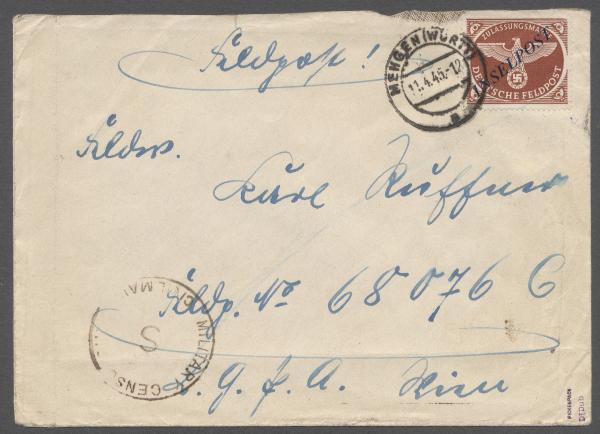 Feldpost!
MENGEN (WÜRTT)
11.4.45.-12
ZULASSUNGSMARKE
INSELPOST
DEUTSCHE FELDPOST
Feldw.
Karl Ruffner
Feldp. No 68076 C
L. G. P. A. Wien
CIVIL MAIL
S
MILITARY CENSORSHIP